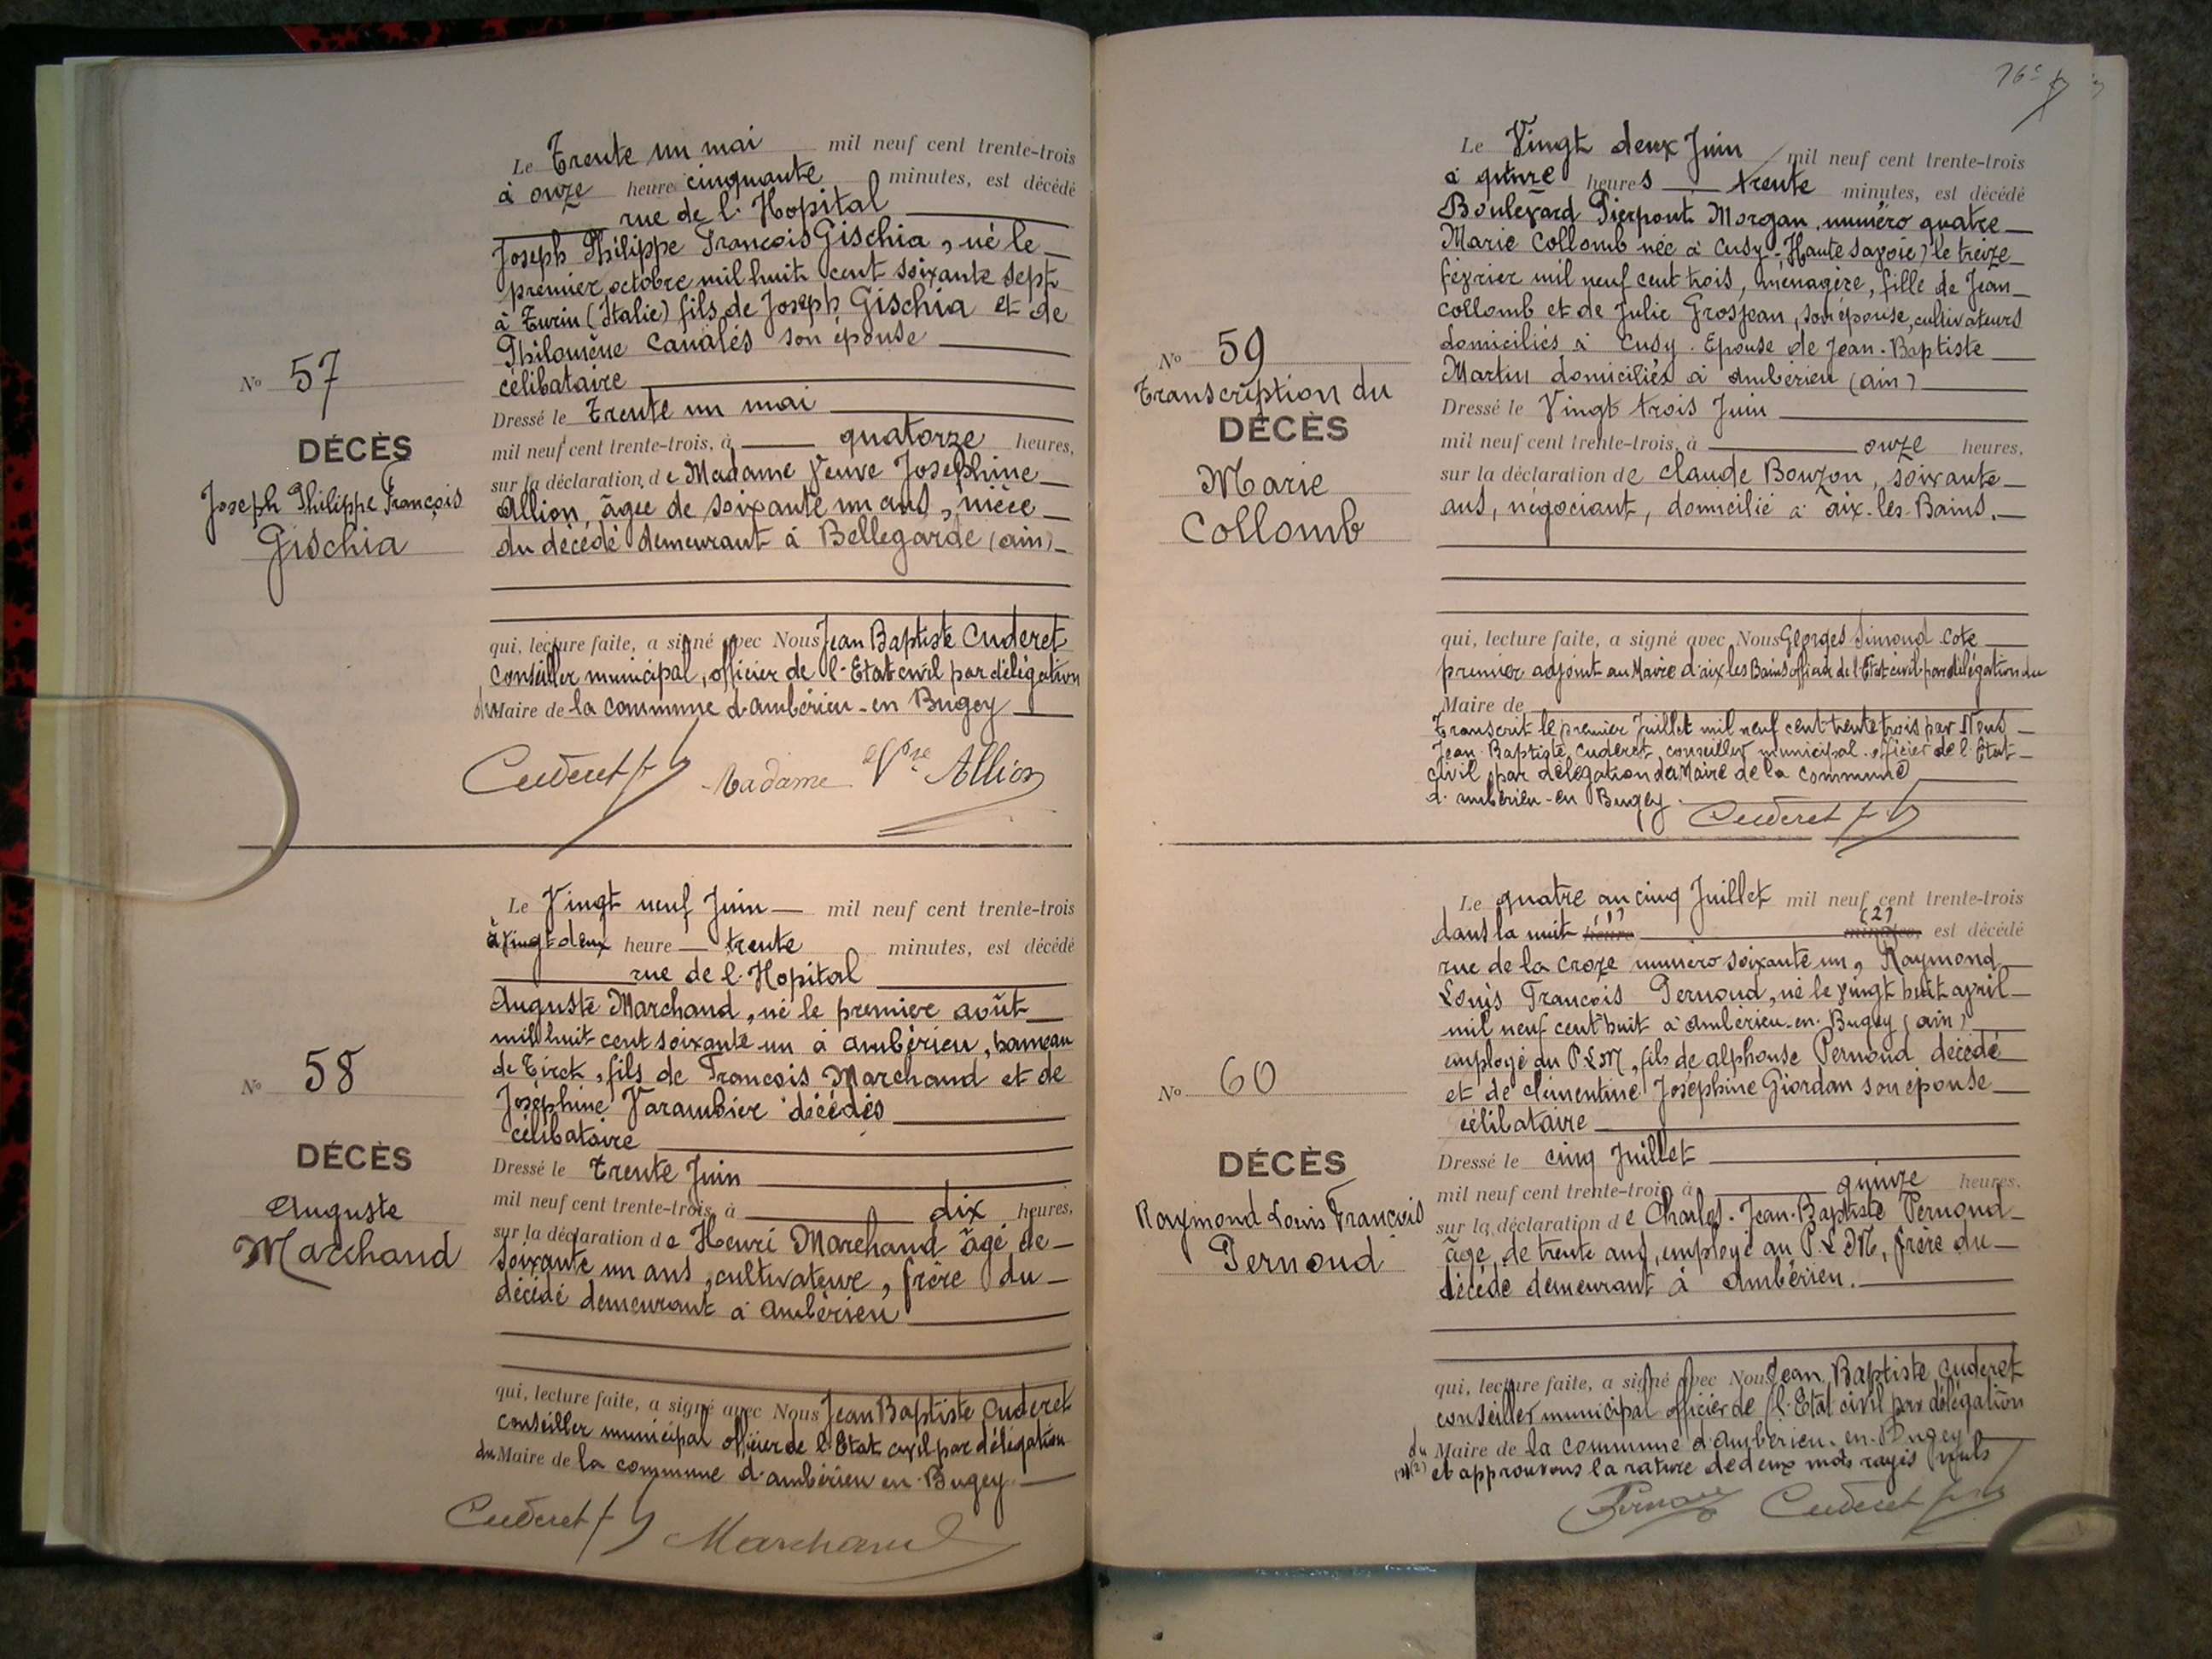 Le Trente un mai mil neuf cent trente-trois
à onze heure cinquante minutes, est décédé
rue de l'Hopital
Joseph Philippe François Gischia, né le
premier octobre mil huit cent soixante sept
à Turin (Italie) fils de Joseph Gischia et de
Philomène Canalès son épouse
célibataire
N° 57
DÉCÈS
Joseph Philippe François
Gischia
Dressé le Trente un mai
mil neuf cent trente-trois, à quatorze heures,
sur la déclaration de Madame Veuve Josephine
Allion, âgée de soixante un ans, nièce
du décédé demeurant à Bellegarde (ain)
qui, lecture faite, a signé avec Nous Jean Baptiste Cuderet
conseiller municipal, officier de l'Etat civil par délégation
du Maire de la commune d'ambérieu-en Bugey
Cuderet Madame Vve Allion
Le Vingt neuf Juin mil neuf cent trente-trois
à vingt-deux heure trente minutes, est décédé
rue de l'Hopital
Auguste Marchand, né le premier août
mil huit cent soixante un à ambérieu, hameau
de Tiret, fils de François Marchand et de
Joséphine Varambier décédés
célibataire
N° 58
DÉCÈS
Auguste
Marchand
Dressé le trente Juin
mil neuf cent trente-trois, à dix heures,
sur la déclaration de Henri Marchand âgé de
soixante un ans, cultivateur, frère du
décédé demeurant à Ambérieu
qui, lecture faite, a signé avec Nous Jean Baptiste Cuderet
conseiller municipal officier de l'Etat civil par délégation
du Maire de la commune d'ambérieu en Bugey
Cuderet Marchand
76e
Le Vingt deux Juin mil neuf cent trente-trois
à quinze heures trente minutes, est décédé
Boulevard Pierpont Morgan, numéro quatre
Marie Collomb née à Cusy (Haute Savoie) le treize
février mil neuf cent trois, ménagère, fille de Jean
Collomb et de Julie Grosjean, son épouse, cultivateurs
domiciliés à Cusy. Epouse de Jean-Baptiste
Martin domiciliés à Ambérieu (ain)
N° 59
Transcription du
DÉCÈS
Marie
Collomb
Dressé le Vingt trois Juin
mil neuf cent trente-trois, à onze heures,
sur la déclaration de Claude Bouzon, soixante
ans, négociant, domicilié à aix-les-Bains.
qui, lecture faite, a signé avec Nous Georges Simond Cote
premier adjoint au Maire d'aix les Bains officier de l'Etat civil par délégation du
Maire de
Transcrit le premier Juillet mil neuf cent trente trois par Nous
Jean-Baptiste Cuderet, conseiller municipal officier de l'Etat
civil par délégation du Maire de la commune
d'ambérieu-en Bugey. Cuderet
Le quatre au cinq Juillet mil neuf cent trente-trois
dans la nuit (1) heure (2) minutes, est décédé
rue de la Croze numéro soixante un, Raymond
Louis François Pernoud, né le vingt huit avril
mil neuf cent huit à ambérieu-en-Bugey (ain)
employé au P.L.M, fils de alphonse Pernoud décédé
et de Clémentine Joséphine Giordan son épouse
célibataire
N° 60
DÉCÈS
Raymond Louis François
Pernoud
Dressé le cinq Juillet
mil neuf cent trente-trois, à quinze heures,
sur la déclaration de Charles-Jean-Baptiste Pernoud
âgé de trente ans, employé au P.L.M, frère du
décédé demeurant à Ambérieu.
qui, lecture faite, a signé avec Nous Jean Baptiste Cuderet
conseiller municipal officier de l'Etat civil par délégation
du Maire de la commune d'ambérieu-en-Bugey
(1)(2) et approuvons la rature de deux mots rayés nuls
Pernoud Cuderet